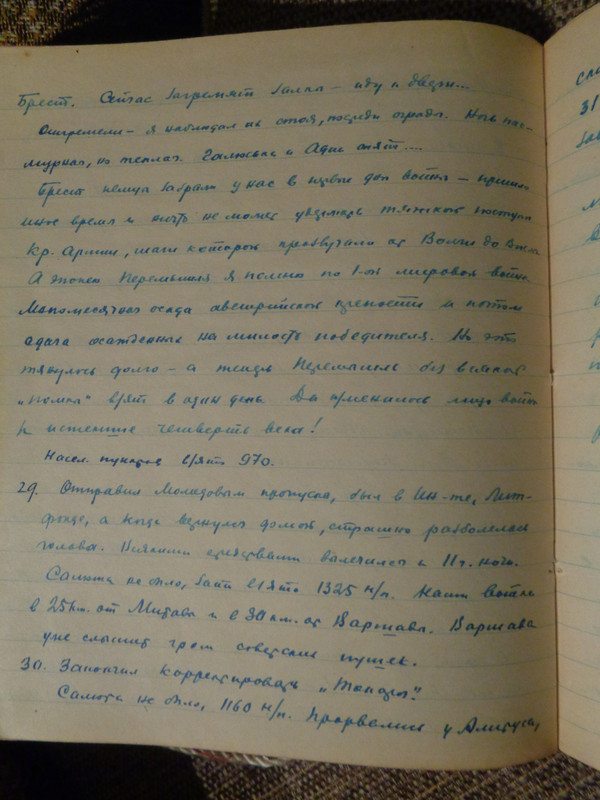 Брест. Сейчас загремят залпы – иду к двери...
Отгремели – я наблюдал не стоя, посреди ограды. Ночь пас-
мурная, но теплая. Галюська и Адик спят....
Брест немцы забрали у нас в первые дни войны –
иное время и ничто не может удержать тяжелой поступи
Кр. Армии, шаги которой прозвучали от Волги до
А эпопею Перемышля я помню по 1-ой мировой войне.
Многомесячная осада австрийской крепости и потом
сдача осажденных на милость победителя. Но это
тянулось долго – а теперь Перемышль без всякой
"помпы" взят в один день. Да изменилось лицо войны
к истечению четверти века!
Насел. пунктов взято 970.
29. Отправил Молидовым пропуска, был в Ин-те, Лит-
фонде, а когда вернулся домой, страшно разболелась
голова. Всякими средствами вылечился к 11 ч. ночи.
Салюта не было, было взято 1325 н/п. Наши войска
в 25 км. от Митавы и в 30 км. от Варшавы. Варшава
уже слышит гром советских пушек.
30. Закончил корректировать "
Салюта не было, 1160 н/п. Прорвались у Алитуса,